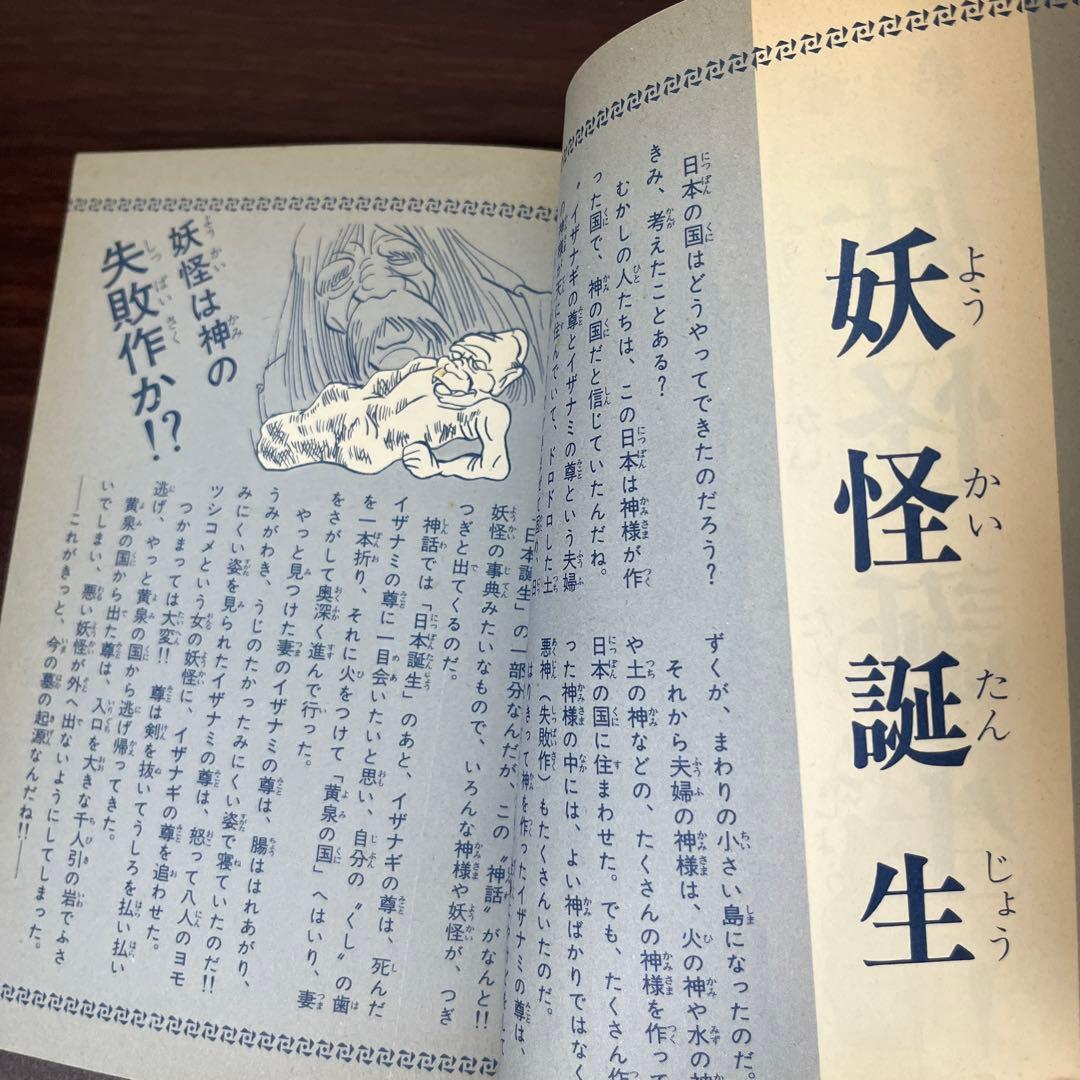 妖怪誕生
日本の国はどうやってできたのだろう?
きみ、考えたことある?
むかしの人たちは、この日本は神様が作
った国で、神の国だと信じていたんだね。
イザナギの尊とイザナミの尊という夫婦
の神様が天に住んでいて、ドロドロした土
ずくが、まわりの小さい島になったのだ。
それから夫婦の神様は、火の神や水の神
や土の神などの、たくさんの神様を作って
日本の国に住まわせた。でも、たくさん作
った神様の中には、よい神ばかりではなく
悪神(失敗作)もたくさんいたのだ。
はりきって神を作ったイザナミの尊は、
妖怪は神の
失敗作か!?
「日本誕生」の一部分なんだが、この〝神話〟がなんと!!
妖怪の事典みたいなもので、いろんな神様や妖怪が、つぎ
つぎと出てくるのだ。
神話では「日本誕生」のあと、イザナギの尊は、死んだ
イザナミの尊に一目会いたいと思い、自分の〝くし〟の歯
を一本折り、それに火をつけて「黄泉の国」へはいり、妻
をさがして奥深く進んで行った。
やっと見つけた妻のイザナミの尊は、腸ははれあがり、
うみがわき、うじのたかったみにくい姿で寝ていたのだ!!
みにくい姿を見られたイザナミの尊は、怒って八人のヨモ
ツシコメという女の妖怪に、イザナギの尊を追わせた。
つかまっては大変!! 尊は剣を抜いてうしろを払い払い
逃げ、やっと黄泉の国から逃げ帰ってきた。
黄泉の国から出た尊は、入口を大きな千人引の岩でふさ
いでしまい、悪い妖怪が外へ出ないようにしてしまった。
──これがきっと、今の墓の起源なんだね!!──